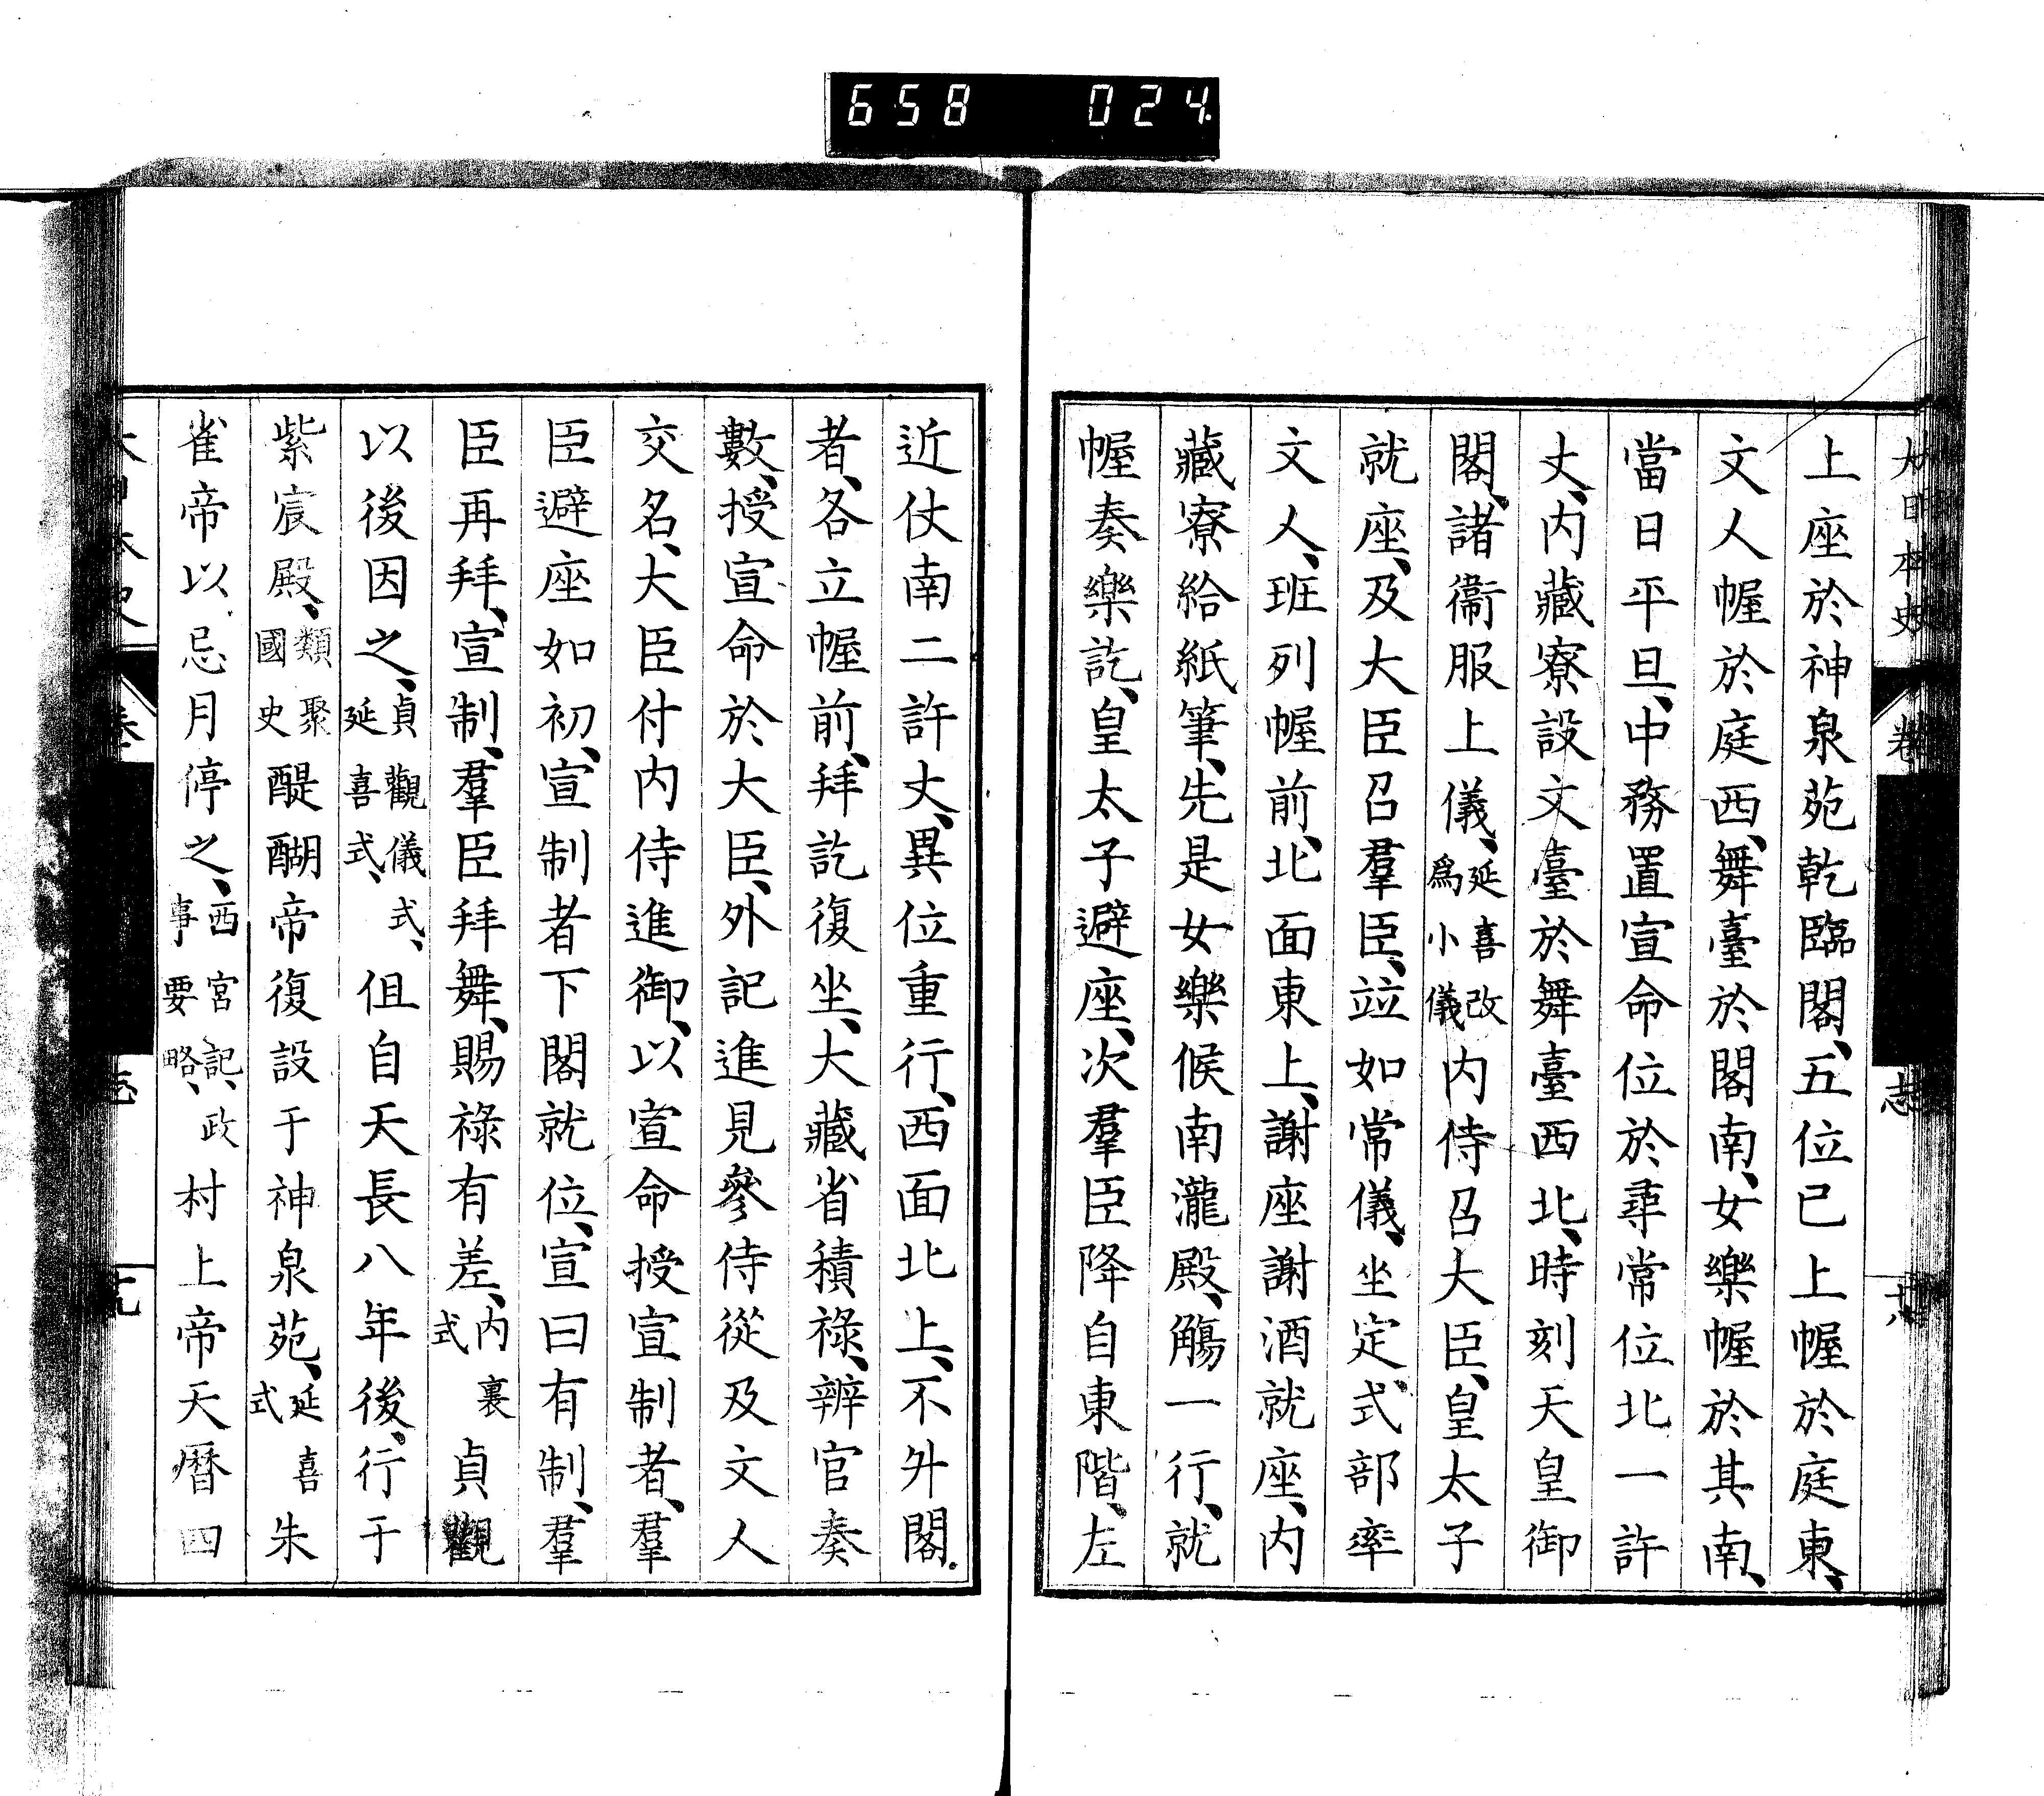 658 024
大日本史 卷 志 十八
上座於神泉苑乾臨閣、五位已上幄於庭東、
文人幄於庭西、舞臺於閣南、女樂幄於其南、
當日平旦、中務置宣命位於尋常位北一許
丈、内藏寮設文臺於舞臺西北、時刻天皇御
閣、諸衞服上儀、延喜改爲小儀内侍召大臣、皇太子
就座、及大臣召羣臣、竝如常儀、坐定、式部率
文人、班列幄前、北面東上、謝座謝酒就座、内
藏寮給紙筆、先是女樂候南瀧殿、觴一行、就
幄奏樂訖、皇太子避座、次羣臣降自東階、左
近仗南二許丈、異位重行、西面北上、不外閣.
者、各立幄前、拜訖復坐、大藏省積祿、辨官奏
數、授宣命於大臣、外記進見參侍從及文人
交名、大臣付内侍進御、以宣命授宣制者、羣
臣避座如初、宣制者下閣就位、宣曰有制、羣
臣再拜、宣制、羣臣拜舞、賜祿有差、内裏式貞觀
以後因之、貞觀儀式、延喜式、但自天長八年後、行于
紫宸殿、類聚國史醍醐帝復設于神泉苑、延喜式朱
雀帝以忌月停之、西宮記、政事要略、村上帝天曆四
大日本史 卷 志